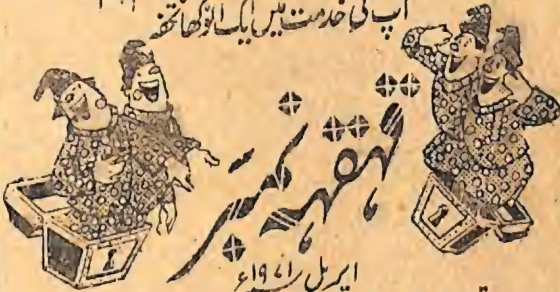 آپ کی خدمت میں ایک انوکھا تحفہ
قہقہہ نمبر
اپریل ۱۹۷۱ء